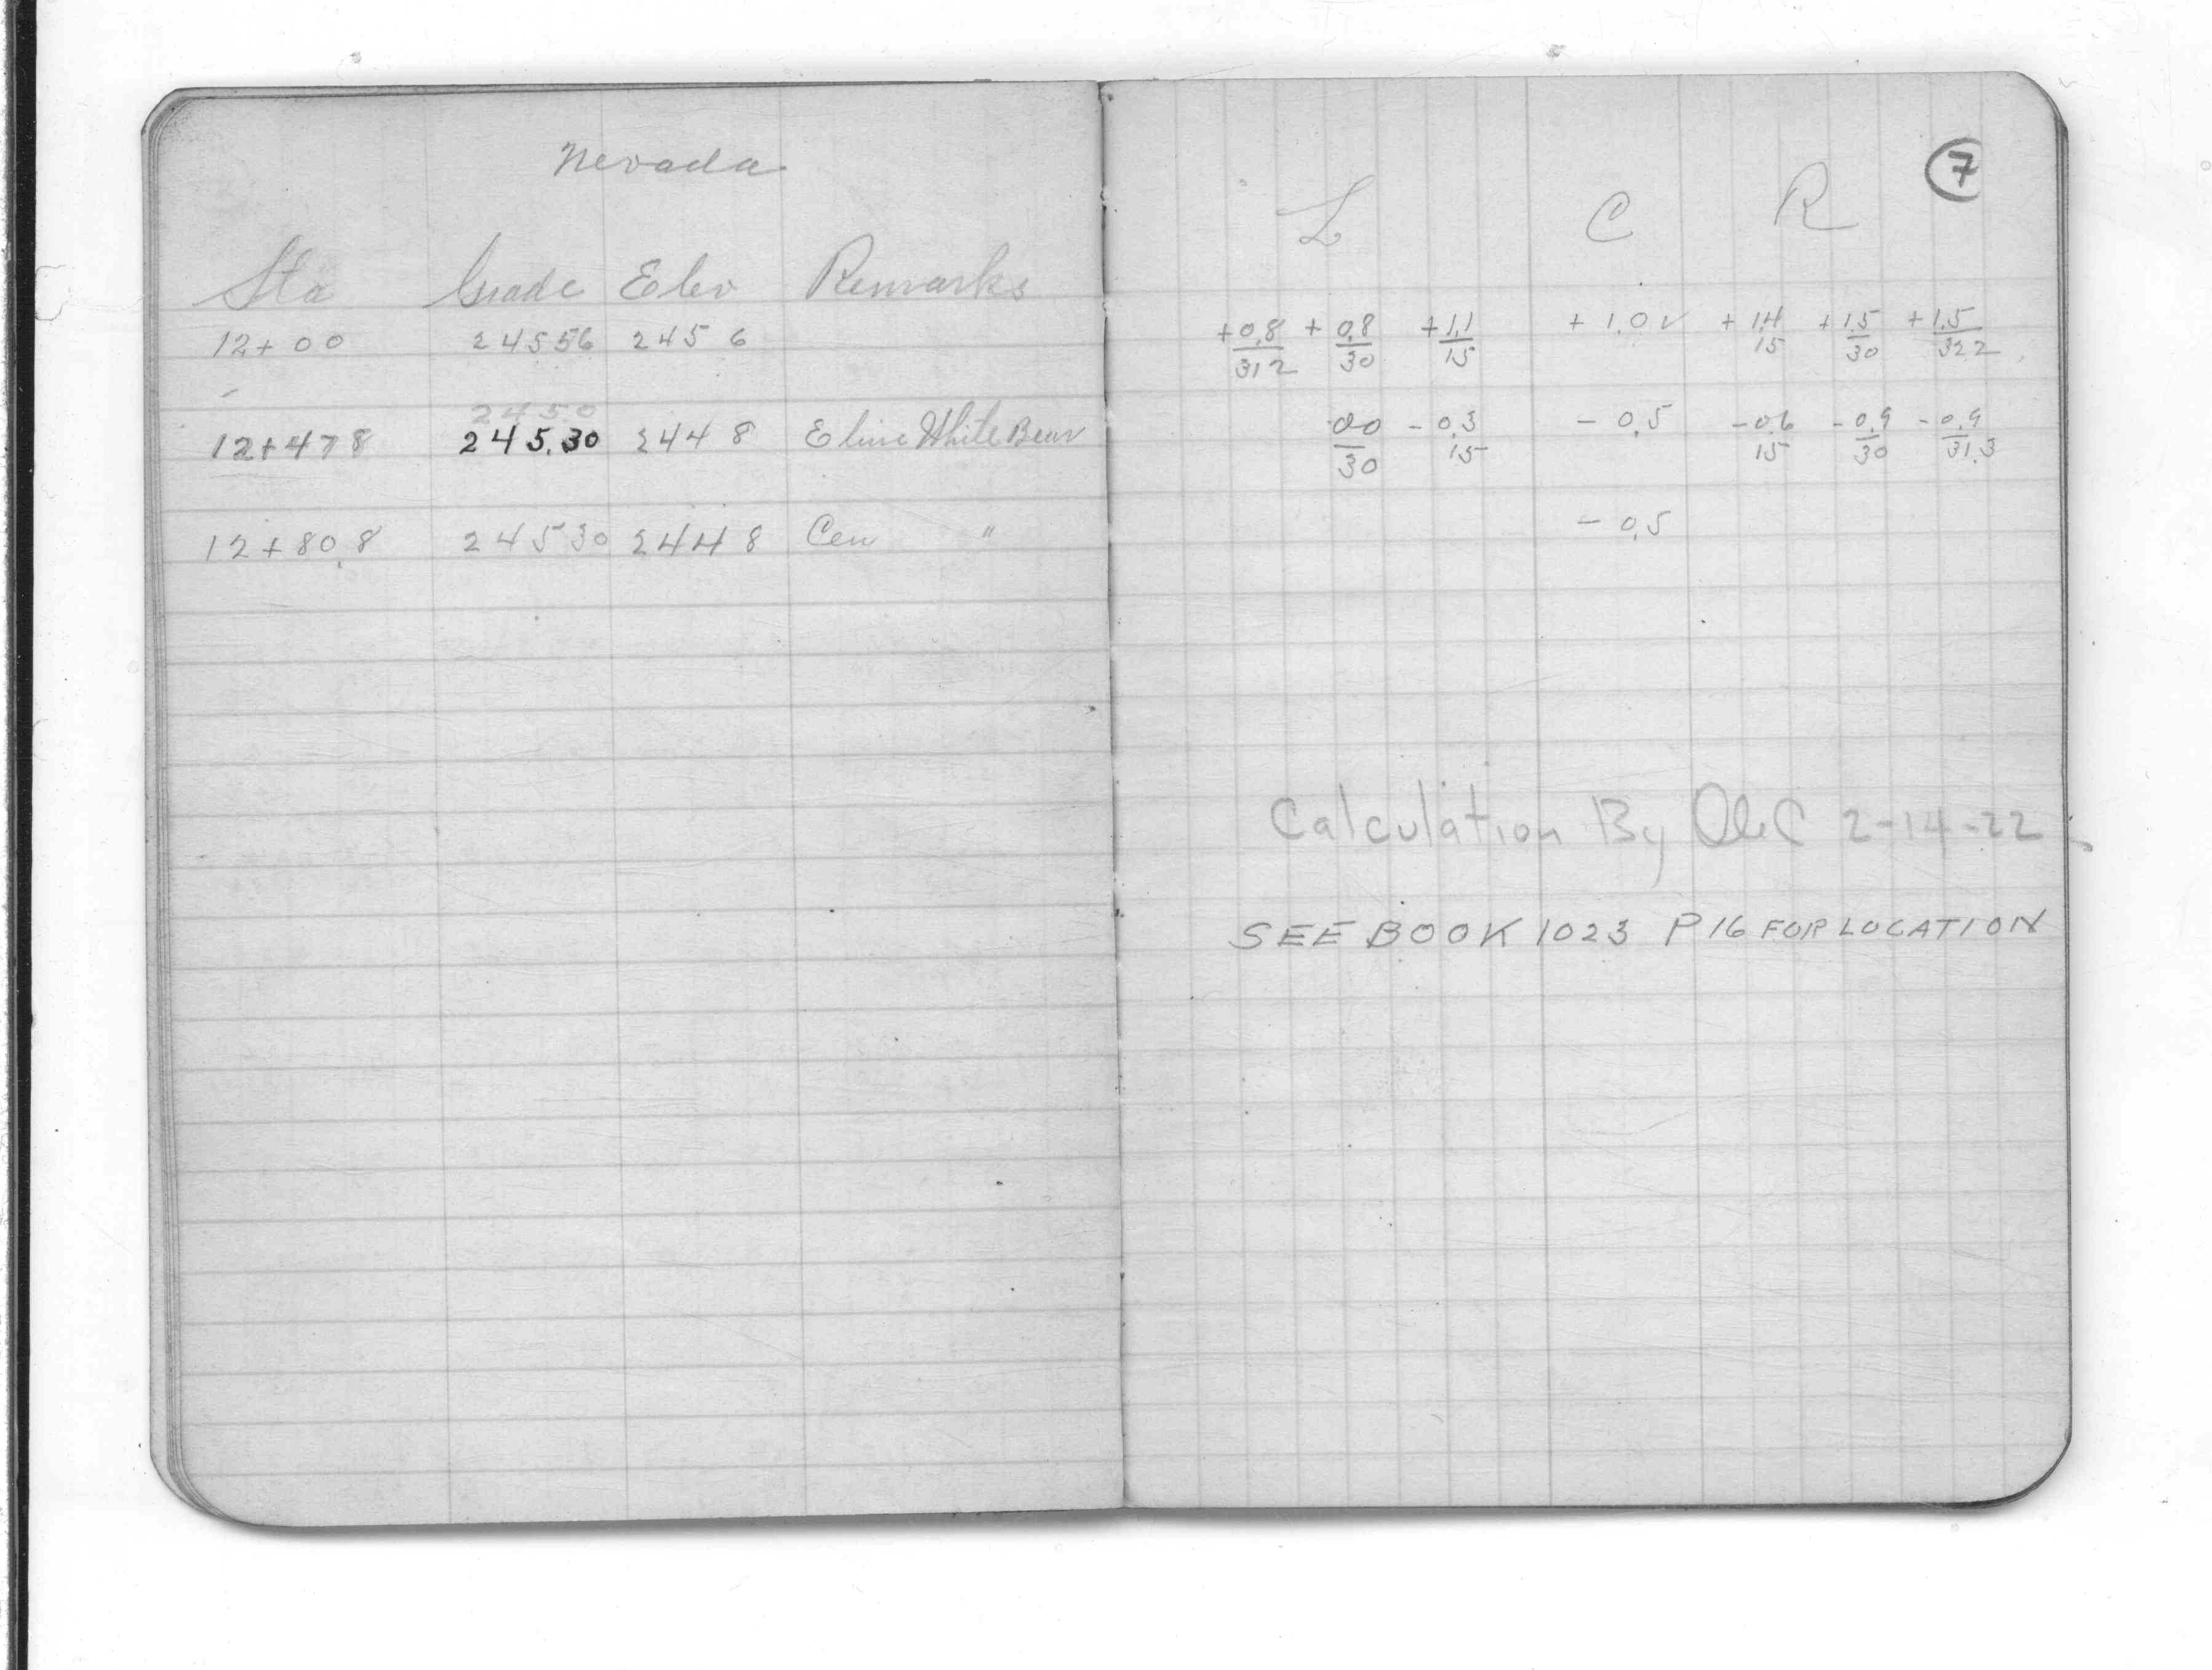 Nevada
Sta Grade Elev Remarks
12+00 24556 2456
2450
12+478 245.30 2448 E line White Bear
12+80.8 24530 2448 Cen "
7
L C R
+0.8 +0.8 +1.1 +1.0 ✓ +1.4 +1.5 +1.5
312 30 15 15 30 322
0.0 -0.3 -0.5 -0.6 -0.9 -0.9
30 15 15 30 31.3
-0.5
Calculation By 2-14-22
SEE BOOK 1023 P16 FOR LOCATION